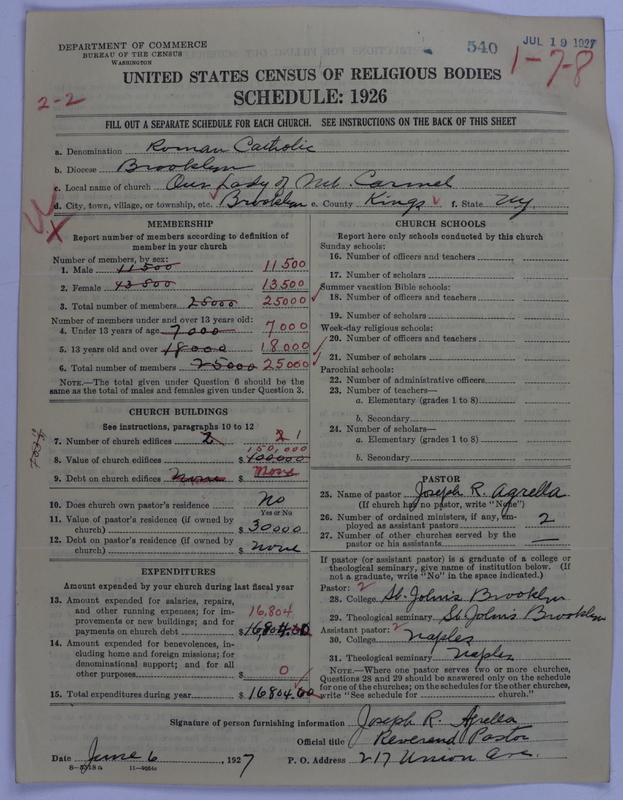 DEPARTMENT OF COMMERCE
BUREAU OF THE CENSUS
WASHINGTON
540
JUL 19 1927
1-7-8
2-2
UNITED STATES CENSUS OF RELIGIOUS BODIES
SCHEDULE: 1926
FILL OUT A SEPARATE SCHEDULE FOR EACH CHURCH. SEE INSTRUCTIONS ON THE BACK OF THIS SHEET
a. Denomination Roman Catholic
b. Diocese Brooklyn
c. Local name of church Our Lady of Mt. Carmel
d. City, town, village, or township, etc. Brooklyn e. County Kings f. State NY
MEMBERSHIP
Report number of members according to definition of
member in your church
Number of members, by sex:
1. Male 11500 11500
2. Female 13500 13500
3. Total number of members 25000 25000
Number of members under and over 13 years old:
4. Under 13 years of age 7000 7000
5. 13 years old and over 18000 18000
6. Total number of members 25000 25000
NOTE.—The total given under Question 6 should be the
same as the total of males and females given under Question 3.
CHURCH BUILDINGS
See instructions, paragraphs 10 to 12
7. Number of church edifices 2 2 1
150,000
8. Value of church edifices $ 100000
9. Debt on church edifices None $ None
10. Does church own pastor's residence No
Yes or No
11. Value of pastor's residence (if owned by
church) $ 30000
12. Debt on pastor's residence (if owned by
church) $ none
EXPENDITURES
Amount expended by your church during last fiscal year
13. Amount expended for salaries, repairs,
and other running expenses; for im-
provements or new buildings; and for
payments on church debt 16,804 $ 16804.60
14. Amount expended for benevolences, in-
cluding home and foreign missions; for
denominational support; and for all
other purposes 0 $
15. Total expenditures during year $ 16804.60
CHURCH SCHOOLS
Report here only schools conducted by this church
Sunday schools:
16. Number of officers and teachers
17. Number of scholars
Summer vacation Bible schools:
18. Number of officers and teachers
19. Number of scholars
Week-day religious schools:
20. Number of officers and teachers
21. Number of scholars
Parochial schools:
22. Number of administrative officers
23. Number of teachers—
a. Elementary (grades 1 to 8)
b. Secondary
24. Number of scholars—
a. Elementary (grades 1 to 8)
b. Secondary
PASTOR
25. Name of pastor Joseph R. Agrella
(If church has no pastor, write "None")
26. Number of ordained ministers, if any, em-
ployed as assistant pastors 2
27. Number of other churches served by the
pastor or his assistants —
If pastor (or assistant pastor) is a graduate of a college or
theological seminary, give name of institution below. (If
not a graduate, write "No" in the space indicated.)
Pastor: 2
28. College St. John's Brooklyn
29. Theological seminary St. John's Brooklyn
Assistant pastor: 2
30. College Naples
31. Theological seminary Naples
NOTE.—Where one pastor serves two or more churches,
Questions 28 and 29 should be answered only on the schedule
for one of the churches; on the schedules for the other churches,
write "See schedule for church."
Signature of person furnishing information Joseph R. Agrella
Official title Reverend Pastor
Date June 6, 1927 P. O. Address 217 Union Ave.